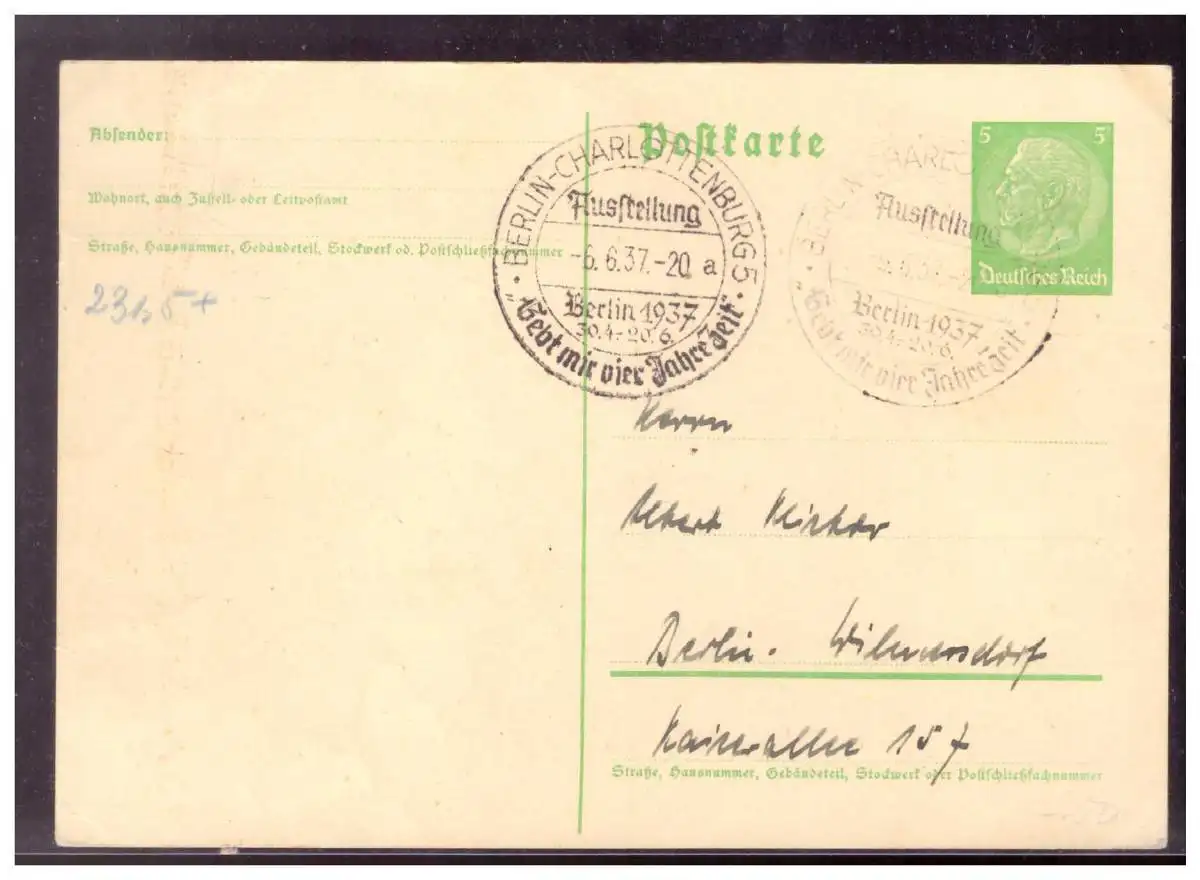 Absender:
Wohnort, auch Zustell- oder Leitpostamt
Straße, Hausnummer, Gebäudeteil, Stockwerk od. Postschließfachnummer
Postkarte
5 5
Deutsches Reich
BERLIN-CHARLOTTENBURG 5
Ausstellung
-6.6.37.-20 a
Berlin 1937
30.4.-20.6.
"Gebt mir vier Jahre Zeit"
Ausstellung
Berlin 1937
30.4.-20.6.
"Gebt mir vier Jahre Zeit"
Herrn
Albert
Berlin. Wilmersdorf
Kaiserallee 157
Straße, Hausnummer, Gebäudeteil, Stockwerk oder Postschließfachnummer